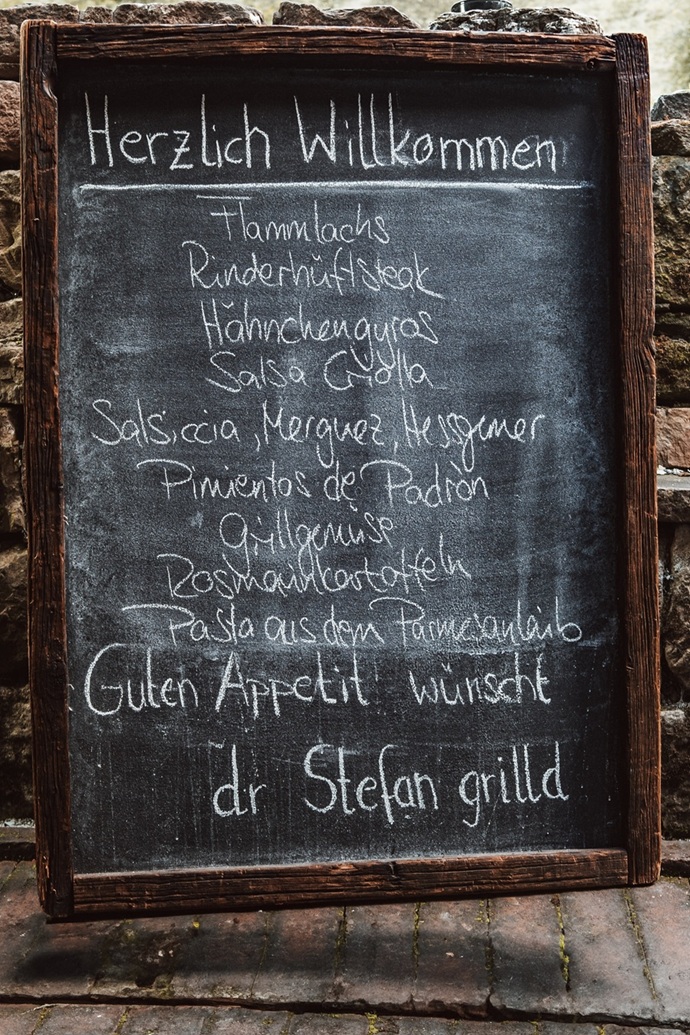 Herzlich Willkommen
Flammlachs
Rinderhüftsteak
Hähnchengyros
Salsa Criolla
Salsiccia, Merguez,
Pimientos de Padròn
Grillgemüse
Rosmarinkartoffeln
Pasta aus dem Parmesanlaib
Guten Appetit wünscht
dr Stefan grilld